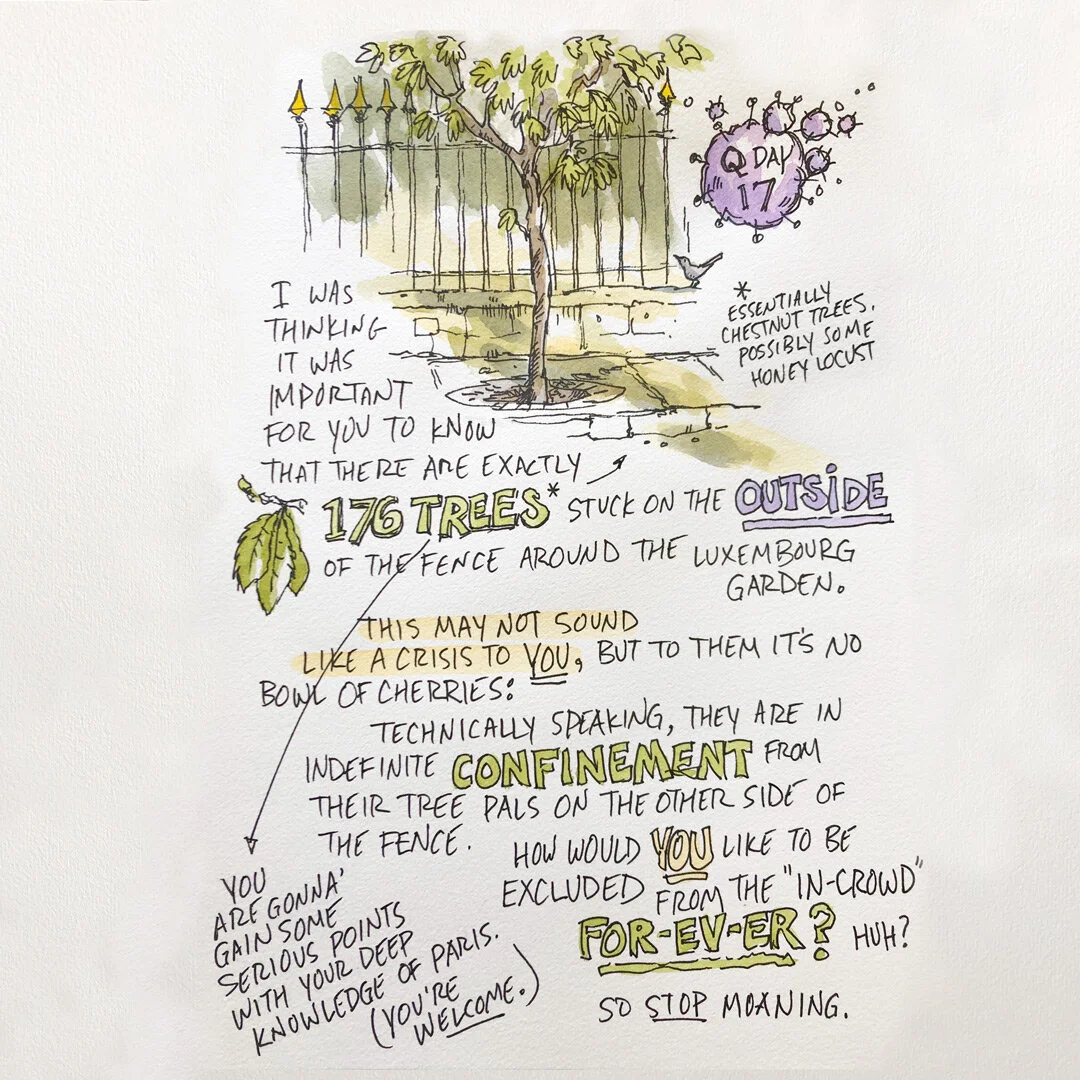 Q DAY
17
I WAS
THINKING
IT WAS
IMPORTANT
FOR YOU TO KNOW
THAT THERE ARE EXACTLY
176 TREES* STUCK ON THE OUTSIDE
OF THE FENCE AROUND THE LUXEMBOURG
GARDEN.
*
ESSENTIALLY
CHESTNUT TREES.
POSSIBLY SOME
HONEY LOCUST
THIS MAY NOT SOUND
LIKE A CRISIS TO YOU, BUT TO THEM IT'S NO
BOWL OF CHERRIES:
TECHNICALLY SPEAKING, THEY ARE IN
INDEFINITE CONFINEMENT FROM
THEIR TREE PALS ON THE OTHER SIDE OF
THE FENCE.
HOW WOULD YOU LIKE TO BE
EXCLUDED FROM THE "IN-CROWD"
FOR-EV-ER? HUH?
SO STOP MOANING.
YOU
ARE GONNA'
GAIN SOME
SERIOUS POINTS
WITH YOUR DEEP
KNOWLEDGE OF PARIS.
(YOU'RE
WELCOME.)